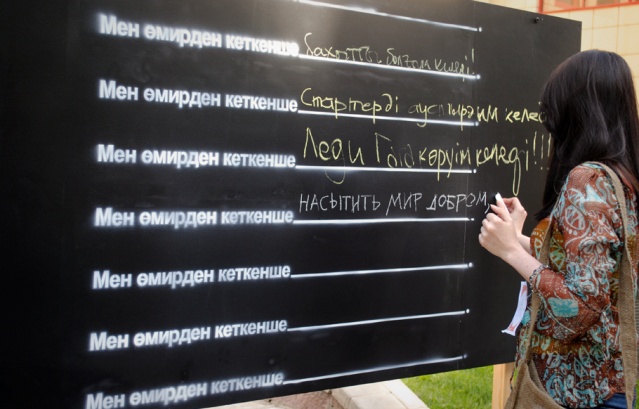 Мен өмирден кеткенше бахытты болғом келеді!
Мен өмирден кеткенше Стартерді ауыстырғым келеді
Мен өмирден кеткенше Леди Гагд көруім келеді!!!
Мен өмирден кеткенше НАСЫТИТЬ МИР ДОБРОМ
Мен өмирден кеткенше
Мен өмирден кеткенше
Мен өмирден кеткенше